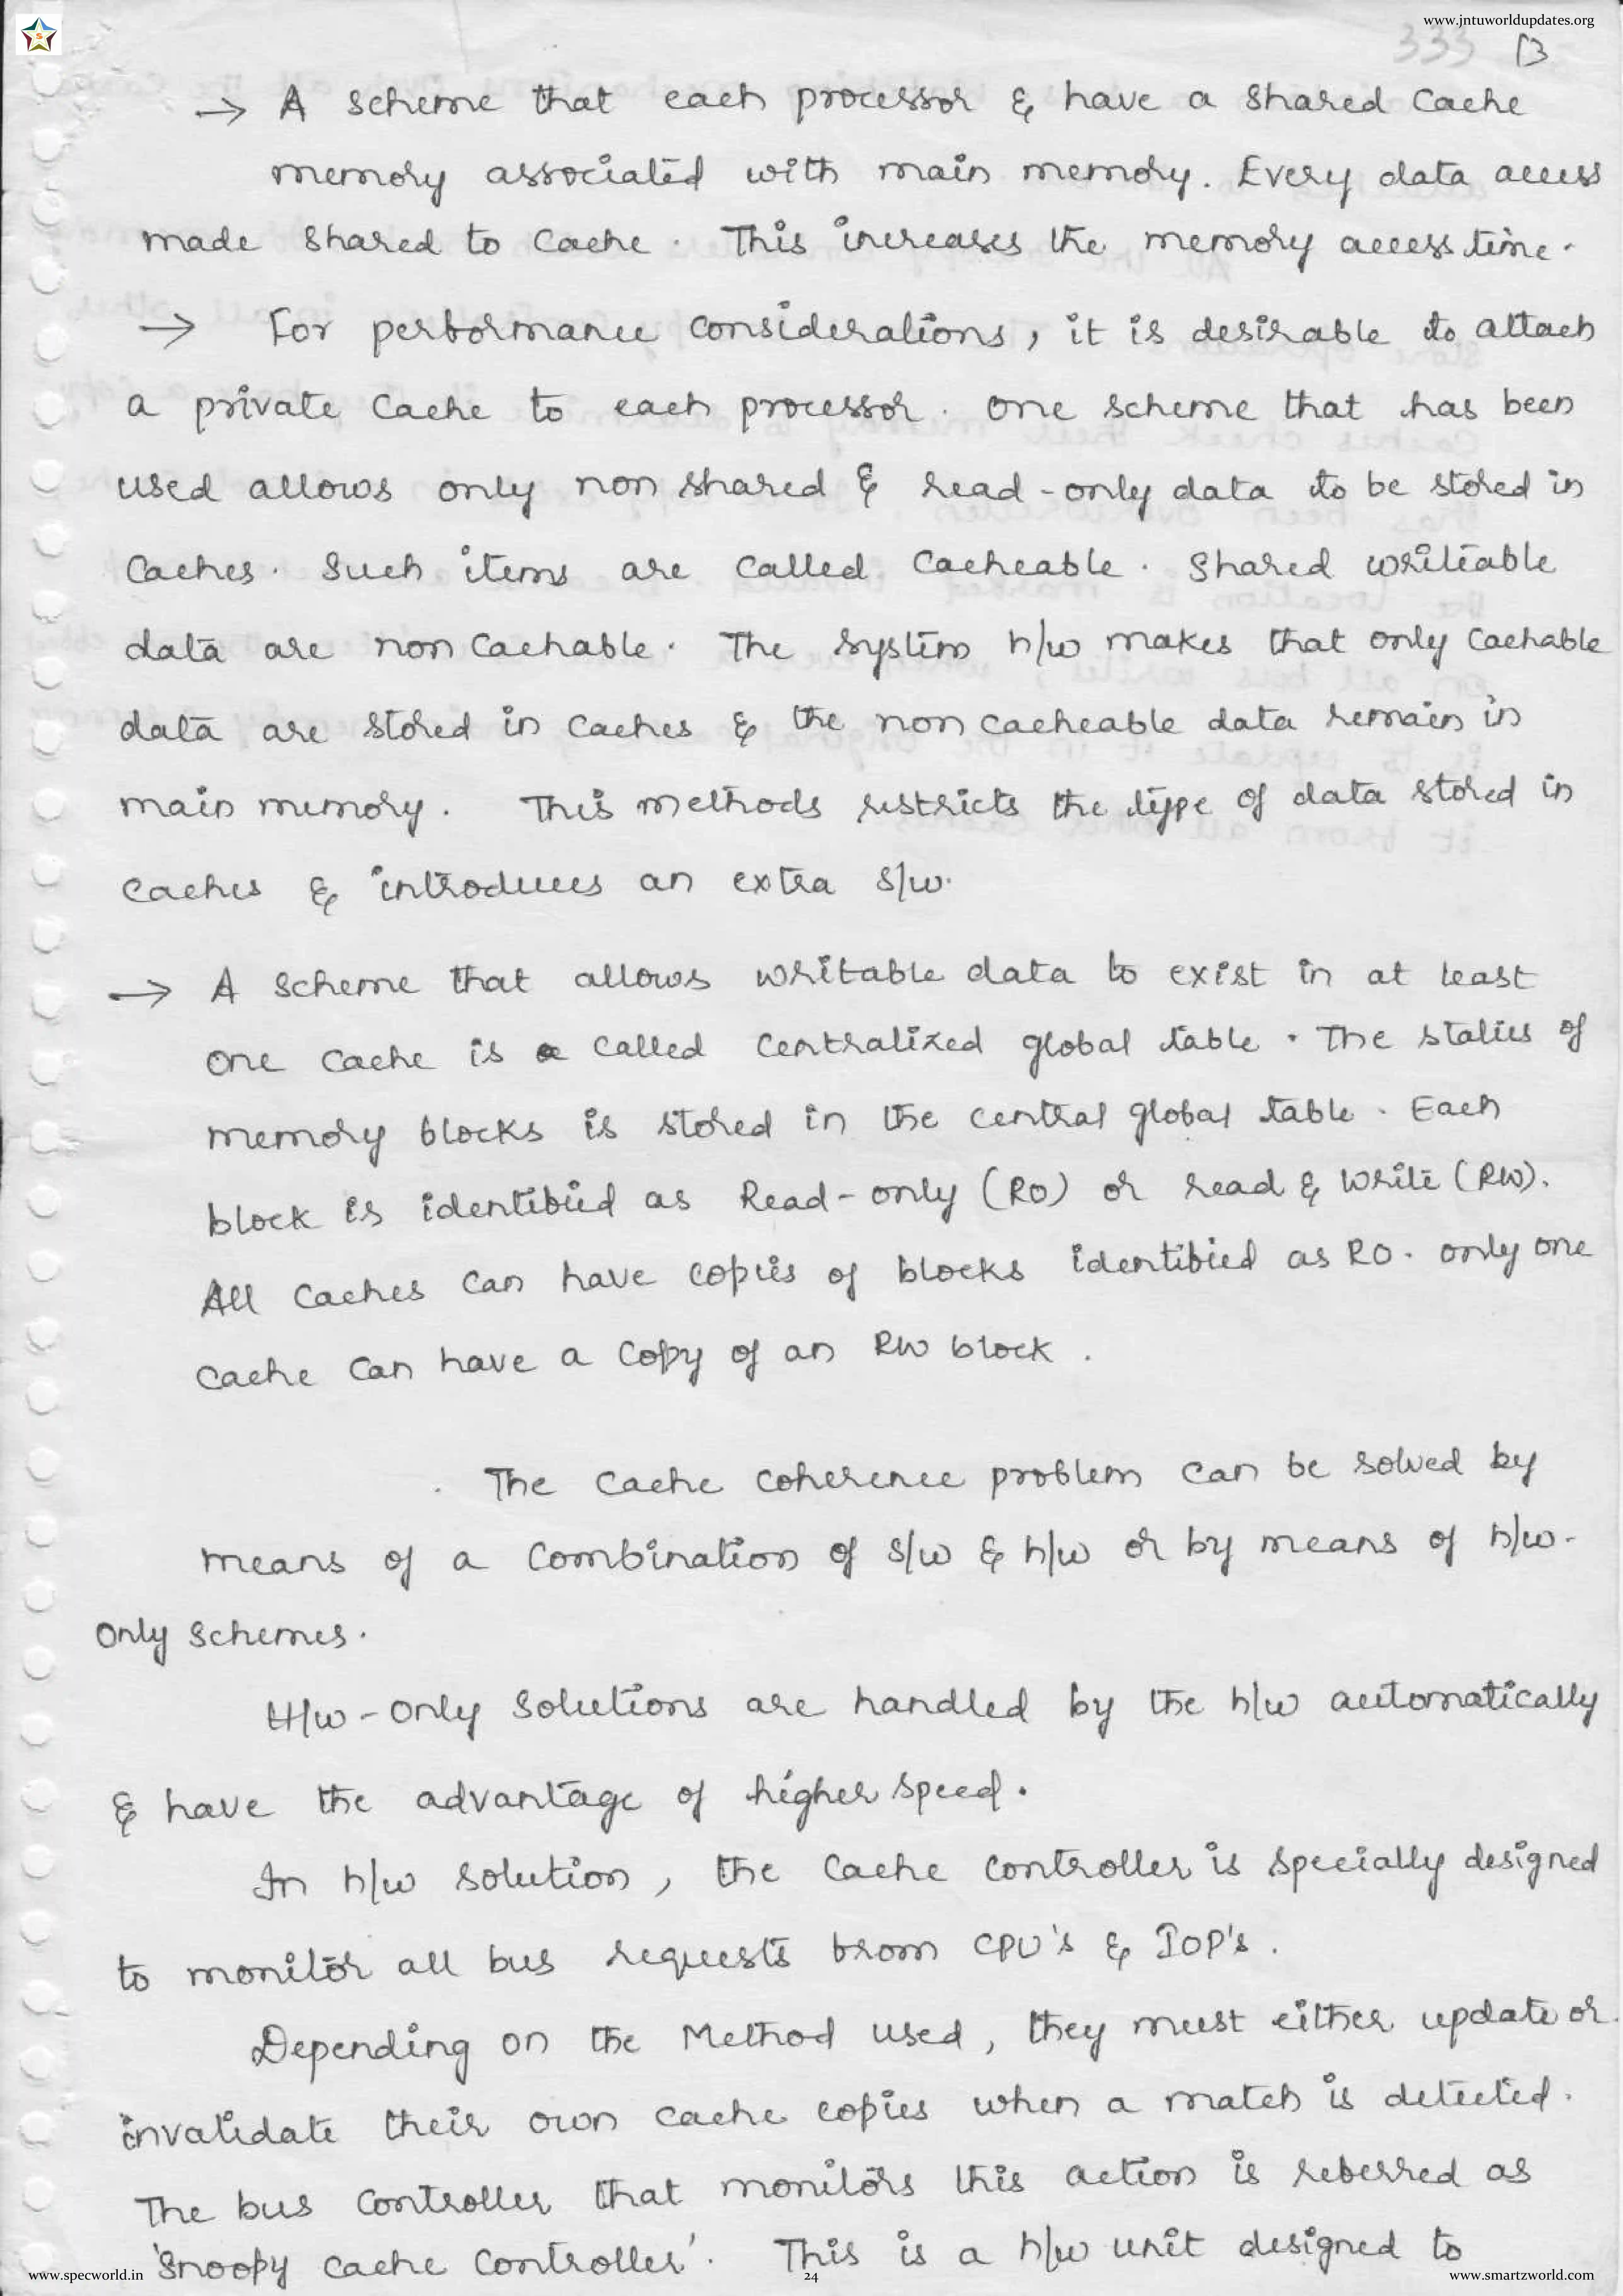 www.jntuworldupdates.org
333 13
→ A scheme that each processor & have a shared cache
memory associated with main memory. Every data access
made shared to cache. This increases the memory access time.
→ For performance considerations, it is desirable to attach
a private cache to each processor. one scheme that has been
used allows only non shared & read-only data to be stored in
caches. Such items are called cacheable. Shared writeable
data are non cachable. The system h/w makes that only cachable
data are stored in caches & the non cacheable data remain in
main memory. This methods restricts the type of data stored in
caches & introduces an extra s/w.
→ A scheme that allows writable data to exist in at least
one cache is a called centralized global table. The status of
memory blocks is stored in the central global table. Each
block is identified as Read-only (RO) or read & write (RW).
All caches can have copies of blocks identified as RO. only one
cache can have a copy of an RW block.
The cache coherence problem can be solved by
means of a combination of s/w & h/w or by means of h/w-
only schemes.
H/w-only solutions are handled by the h/w automatically
& have the advantage of higher speed.
In h/w solution, the cache controller is specially designed
to monitor all bus requests from CPU's & IOP's.
Depending on the Method used, they must either update or
invalidate their own cache copies when a match is detected.
The bus controller that monitors this action is referred as
'Snoopy cache controller'. This is a h/w unit designed to
www.specworld.in 24 www.smartzworld.com